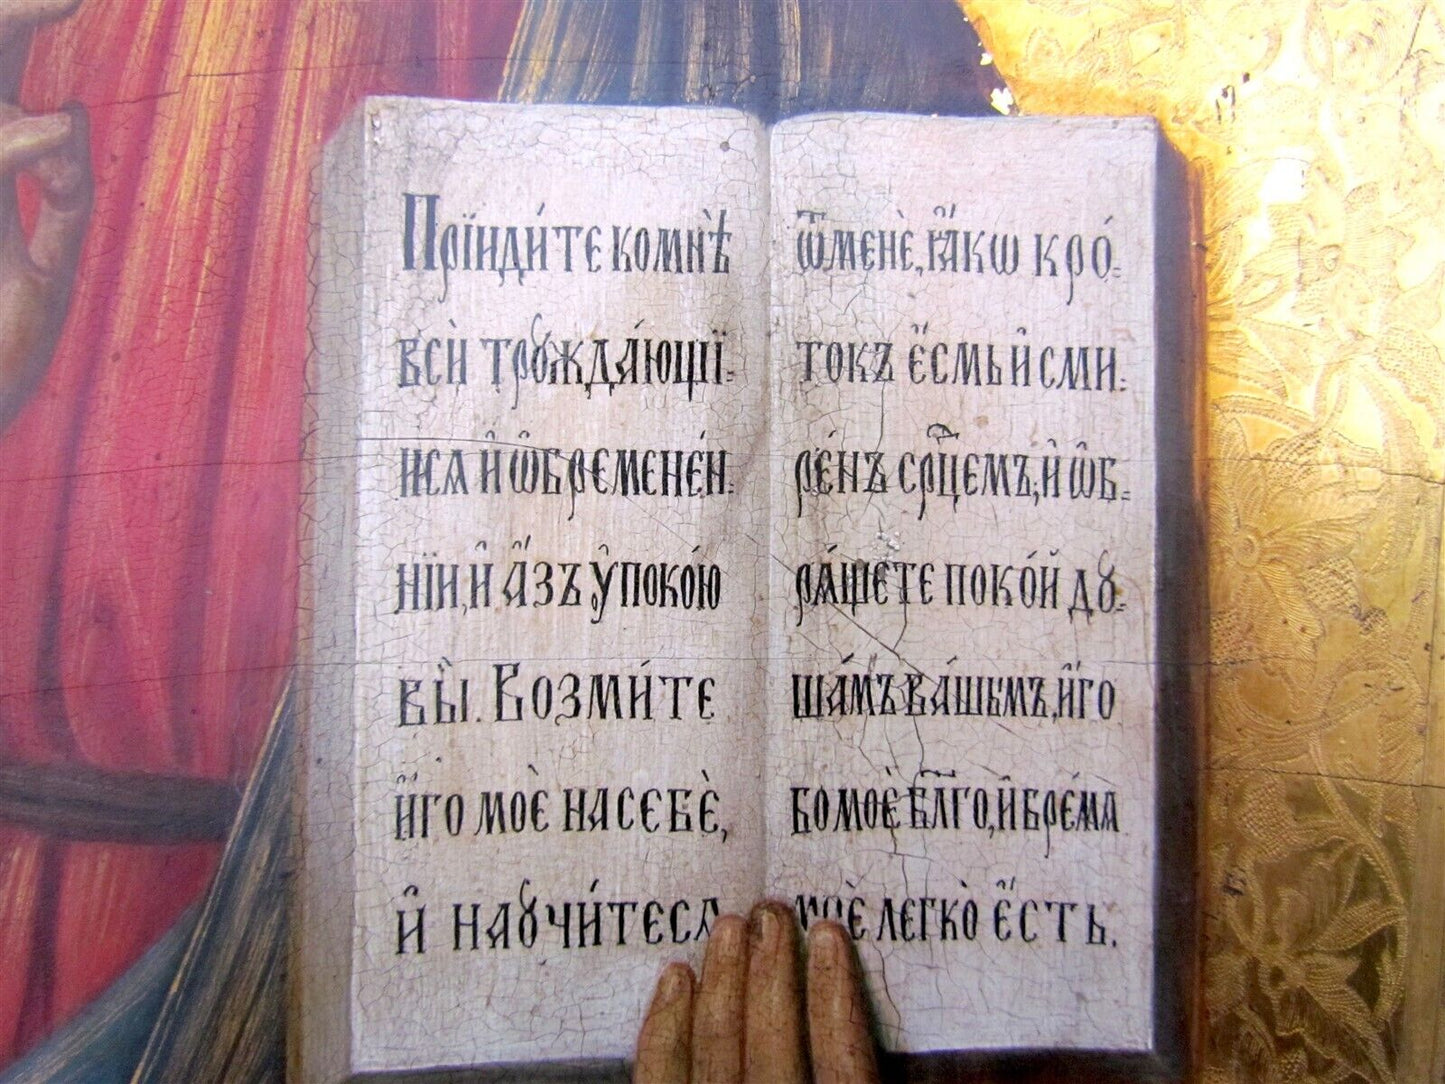 Прїиди́те комнѣ̀
всѝ трꙋжда́ющїѧ҆-
исѧ и҆ ѡ҆бремене́н-
нїи, и҆ а҆́зъ ᲂу҆поко́ю
вы̀. Возми́те
и҆́го моѐ на себѐ,
и҆ наꙋчи́тесѧ
ѿменѐ, ꙗ҆́кѡ кро́-
токъ є҆́смь и҆ сми-
ре́нъ ср҃цемъ, и҆ ѡ҆б-
рѧ́щете поко́й дꙋ-
ша́мъ ва́шымъ, и҆́го
бо моѐ бл҃го, и҆ бре́мѧ
моѐ легко̀ є҆́сть.